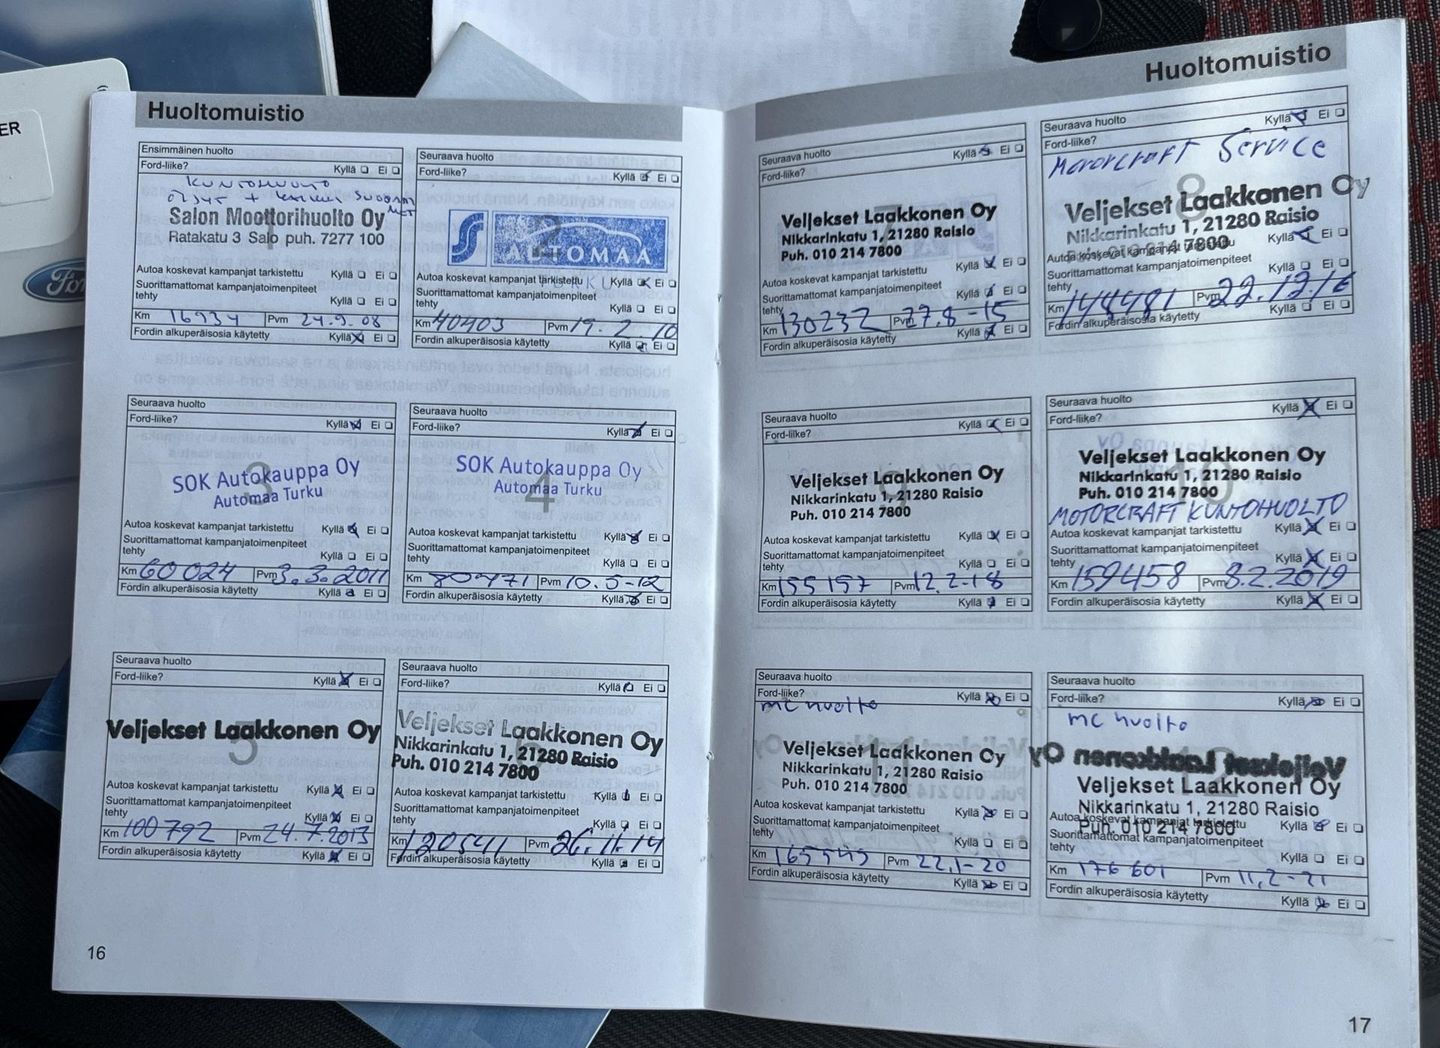 ER
Ford
Huoltomuistio
Ensimmäinen huolto
Ford-liike? Kyllä ❏ Ei ❏
KUNTOHUOLTO
1
Salon Moottorihuolto Oy
Ratakatu 3 Salo puh. 7277 100
Autoa koskevat kampanjat tarkistettu Kyllä ❏ Ei ❏
Suorittamattomat kampanjatoimenpiteet
tehty Kyllä ❏ Ei ❏
Km 16934 Pvm 24.9.08
Fordin alkuperäisosia käytetty Kyllä Ei ❏
Seuraava huolto
Ford-liike? Kyllä Ei ❏
2
S AUTOMAA
Autoa koskevat kampanjat tarkistettu Kyllä Ei ❏
Suorittamattomat kampanjatoimenpiteet
tehty Kyllä ❏ Ei ❏
Km 40403 Pvm 19.2.10
Fordin alkuperäisosia käytetty Kyllä Ei ❏
Seuraava huolto
Ford-liike? Kyllä Ei ❏
3
SOK Autokauppa Oy
Automaa Turku
Autoa koskevat kampanjat tarkistettu Kyllä Ei ❏
Suorittamattomat kampanjatoimenpiteet
tehty Kyllä ❏ Ei ❏
Km 60024 Pvm 3.3.2011
Fordin alkuperäisosia käytetty Kyllä Ei ❏
Seuraava huolto
Ford-liike? Kyllä Ei ❏
4
SOK Autokauppa Oy
Automaa Turku
Autoa koskevat kampanjat tarkistettu Kyllä Ei ❏
Suorittamattomat kampanjatoimenpiteet
tehty Kyllä ❏ Ei ❏
Km 80971 Pvm 10.5-12
Fordin alkuperäisosia käytetty Kyllä Ei ❏
Seuraava huolto
Ford-liike? Kyllä Ei ❏
5
Veljekset Laakkonen Oy
Autoa koskevat kampanjat tarkistettu Kyllä Ei ❏
Suorittamattomat kampanjatoimenpiteet
tehty Kyllä Ei ❏
Km 100792 Pvm 24.7.2013
Fordin alkuperäisosia käytetty Kyllä Ei ❏
Seuraava huolto
Ford-liike? Kyllä Ei ❏
6
Veljekset Laakkonen Oy
Nikkarinkatu 1, 21280 Raisio
Puh. 010 214 7800
Autoa koskevat kampanjat tarkistettu Kyllä Ei ❏
Suorittamattomat kampanjatoimenpiteet
tehty Kyllä ❏ Ei ❏
Km 120541 Pvm 26.11.14
Fordin alkuperäisosia käytetty Kyllä Ei ❏
16
Huoltomuistio
Seuraava huolto
Ford-liike? Kyllä Ei ❏
7
Veljekset Laakkonen Oy
Nikkarinkatu 1, 21280 Raisio
Puh. 010 214 7800
Autoa koskevat kampanjat tarkistettu Kyllä Ei ❏
Suorittamattomat kampanjatoimenpiteet
tehty Kyllä Ei ❏
Km 130232 Pvm 27.8-15
Fordin alkuperäisosia käytetty Kyllä Ei ❏
Seuraava huolto
Ford-liike? Kyllä Ei ❏
Motorcraft Service
8
Veljekset Laakkonen Oy
Nikkarinkatu 1, 21280 Raisio
Puh. 010 214 7800
Autoa koskevat kampanjat tarkistettu Kyllä Ei ❏
Suorittamattomat kampanjatoimenpiteet
tehty Kyllä ❏ Ei ❏
Km 144481 Pvm 22.12.16
Fordin alkuperäisosia käytetty Kyllä ❏ Ei ❏
Seuraava huolto
Ford-liike? Kyllä Ei ❏
9
Veljekset Laakkonen Oy
Nikkarinkatu 1, 21280 Raisio
Puh. 010 214 7800
Autoa koskevat kampanjat tarkistettu Kyllä Ei ❏
Suorittamattomat kampanjatoimenpiteet
tehty Kyllä ❏ Ei ❏
Km 155197 Pvm 12.2-18
Fordin alkuperäisosia käytetty Kyllä Ei ❏
Seuraava huolto
Ford-liike? Kyllä Ei ❏
10
Veljekset Laakkonen Oy
Nikkarinkatu 1, 21280 Raisio
Puh. 010 214 7800
MOTORCRAFT KUNTOHUOLTO
Autoa koskevat kampanjat tarkistettu Kyllä Ei ❏
Suorittamattomat kampanjatoimenpiteet
tehty Kyllä Ei ❏
Km 159458 Pvm 8.2.2019
Fordin alkuperäisosia käytetty Kyllä Ei ❏
Seuraava huolto
Ford-liike? Kyllä Ei ❏
mc huolto
11
Veljekset Laakkonen Oy
Nikkarinkatu 1, 21280 Raisio
Puh. 010 214 7800
Autoa koskevat kampanjat tarkistettu Kyllä Ei ❏
Suorittamattomat kampanjatoimenpiteet
tehty Kyllä ❏ Ei ❏
Km 165545 Pvm 22.1-20
Fordin alkuperäisosia käytetty Kyllä Ei ❏
Seuraava huolto
Ford-liike? Kyllä Ei ❏
mc huolto
Veljekset Laakkonen Oy
Veljekset Laakkonen Oy
Nikkarinkatu 1, 21280 Raisio
Puh. 010 214 7800
Autoa koskevat kampanjat tarkistettu Kyllä Ei ❏
Suorittamattomat kampanjatoimenpiteet
tehty Kyllä ❏ Ei ❏
Km 176601 Pvm 11.2-21
Fordin alkuperäisosia käytetty Kyllä Ei ❏
17